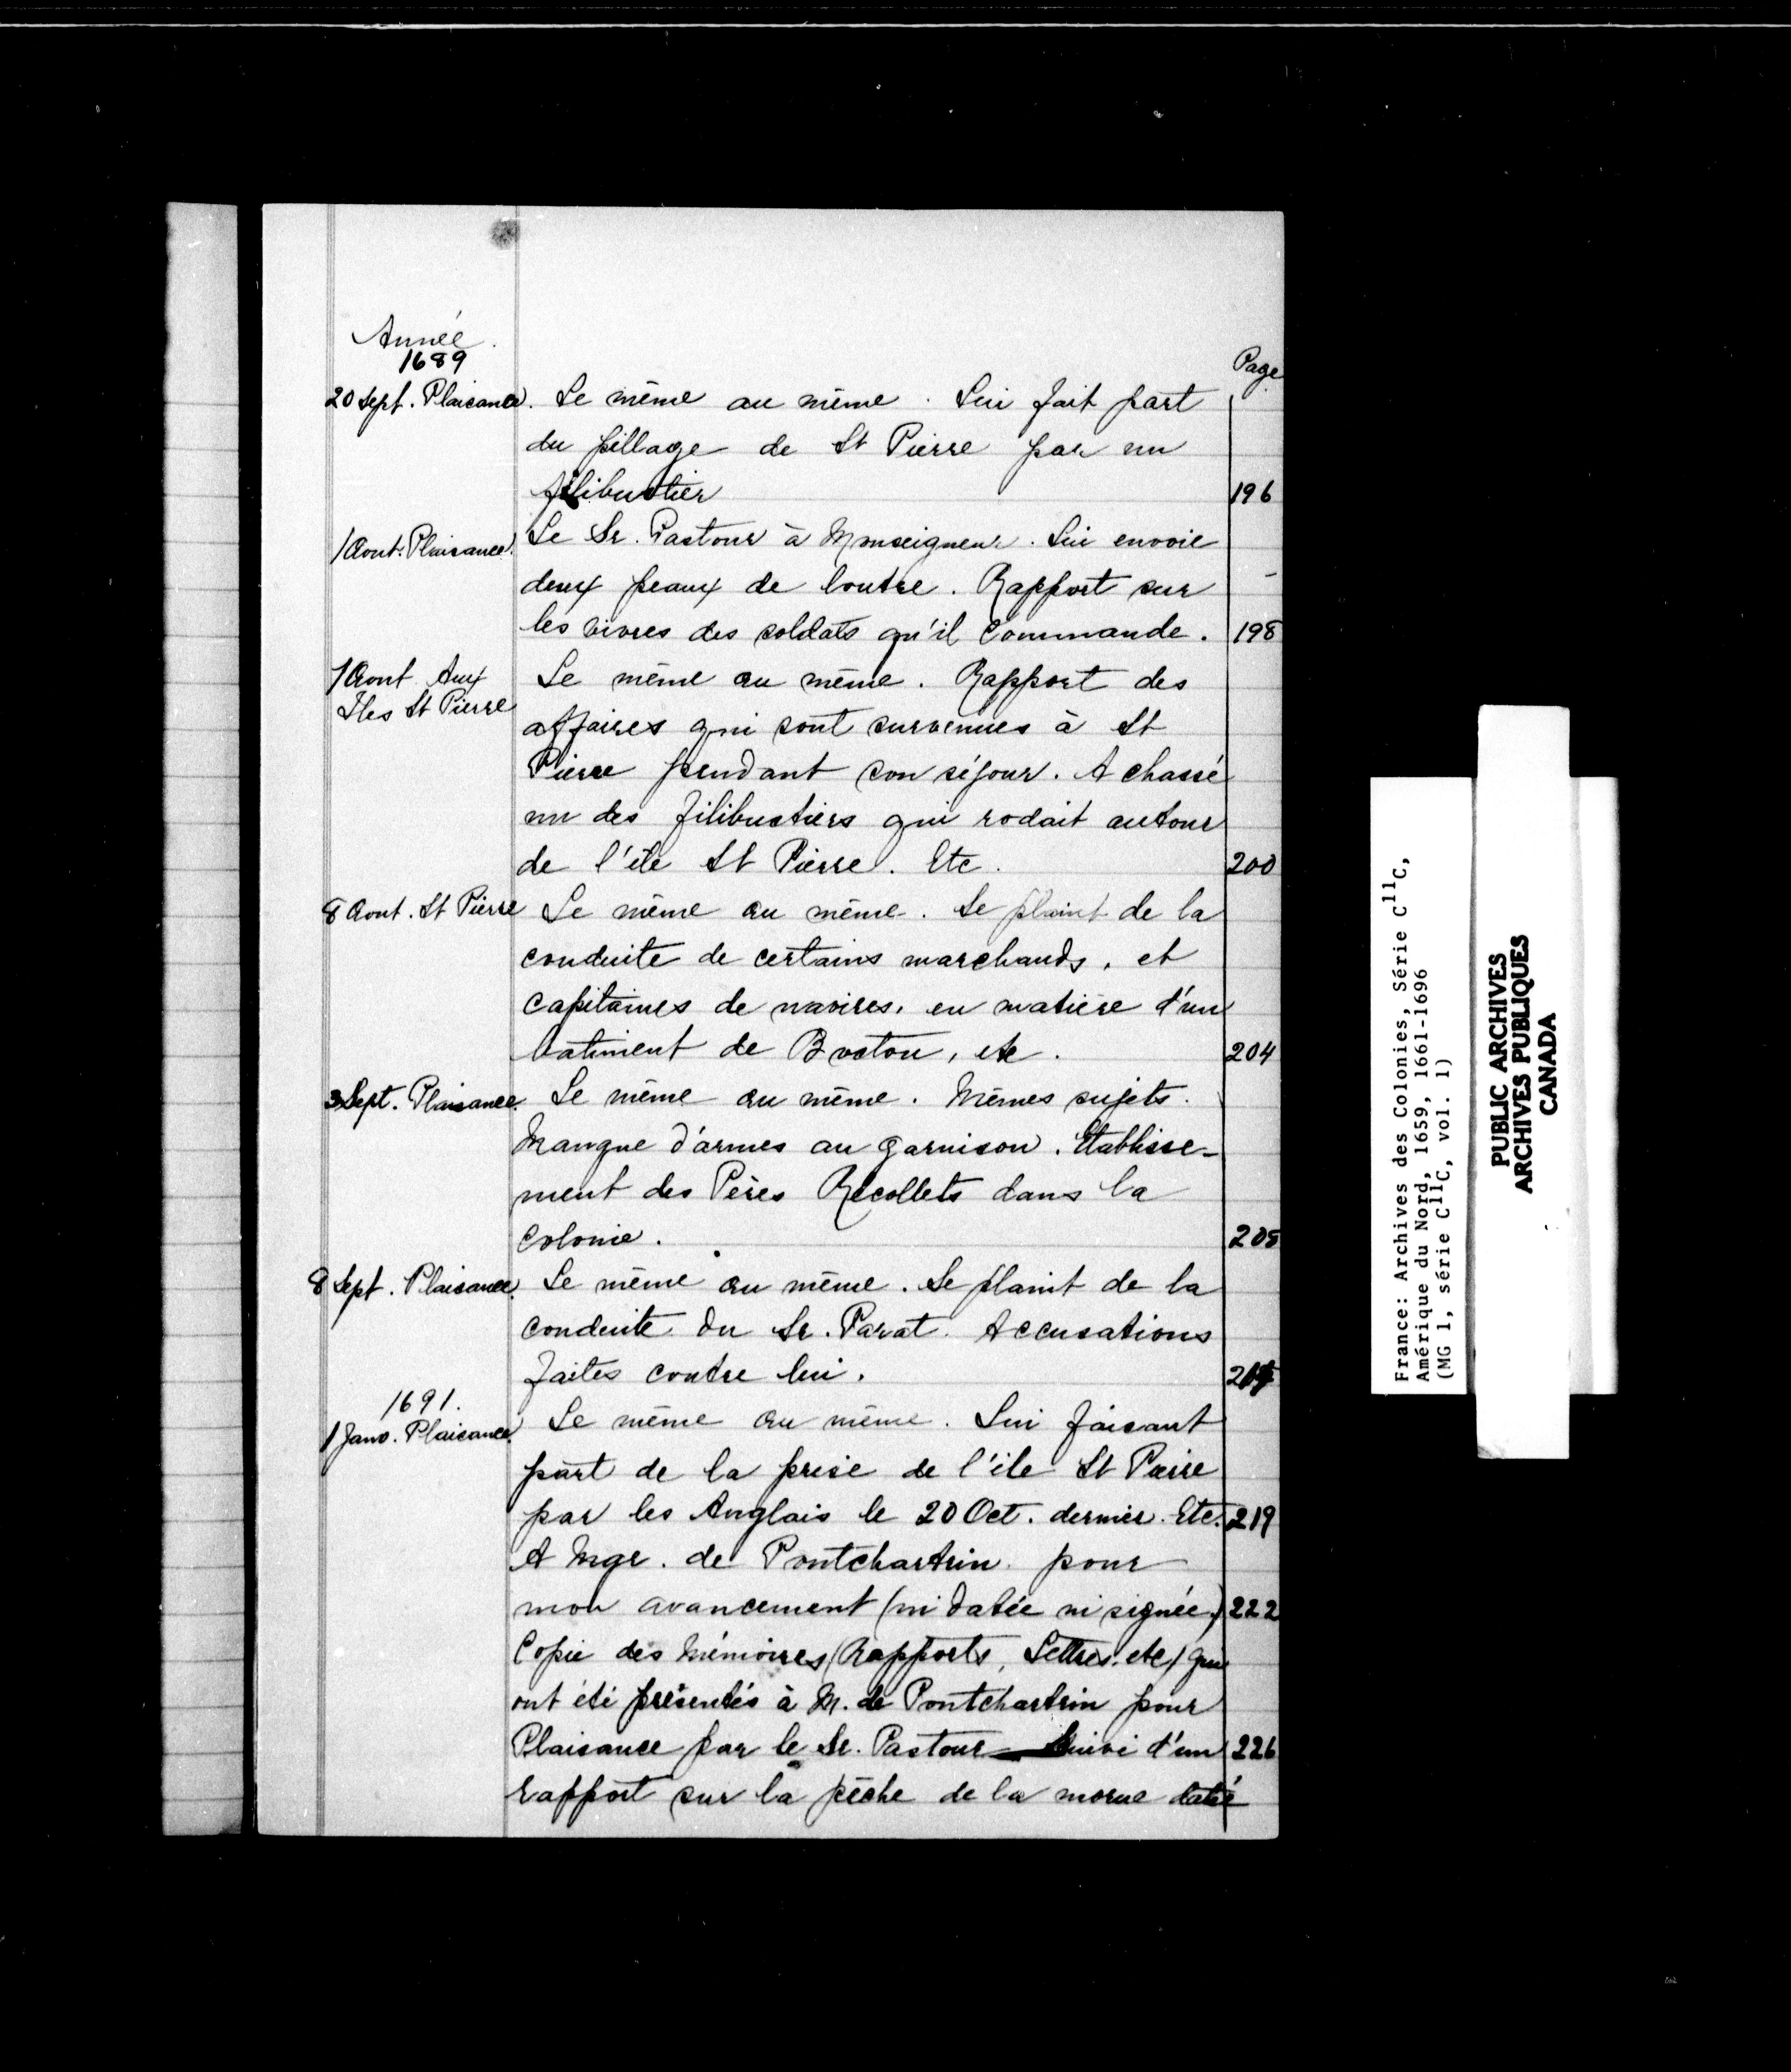 Année.
1689
Page
20 Sept. Plaisance. Le même au même. Lui fait part
du pillage de St Pierre par un
filibustier 196
1 Aout. Plaisance. Le Sr. Pastour à Monseigneur. Lui envoie
deux peaux de loutre. Rapport sur
les vivres des soldats qu'il commande. 198
1 Aout Aux Le même au même. Rapport des
Iles St Pierre affaires qui sont survenues à St
Pierre pendant son séjour. A chassé
un des filibustiers qui rodait autour
de l'île St Pierre. Etc. 200
8 Aout. St Pierre Le même au même. Se plaint de la
conduite de certains marchands, et
capitaines de navires, en matière d'un
batiment de Boston, etc. 204
3 Sept. Plaisance. Le même au même. Mêmes sujets.
Manque d'armes au garnison. Etablisse-
ment des Pères Récollets dans la
Colonie. 205
8 Sept. Plaisance. Le même au même. Se plaint de la
conduite du Sr. Parat. Accusations
faites contre lui.
1691.
1 Janv. Plaisance. Le même au même. Lui faisant
part de la prise de l'île St Pierre
par les Anglais le 20 Oct. dernier. Etc. 219
A Mgr. de Pontchartrin pour
mon avancement (ni datée ni signée.) 222
Copie des Mémoires (Rapports, Lettres, etc) qui
ont été présentés à M. de Pontchartrin pour
Plaisance par le Sr. Pastour Suivi d'un 226
rapport sur la pêche de la morue daté
France: Archives des Colonies, Série C11C,
Amérique du Nord, 1659, 1661-1696
(MG 1, série C11C, vol. 1)
PUBLIC ARCHIVES
ARCHIVES PUBLIQUES
CANADA